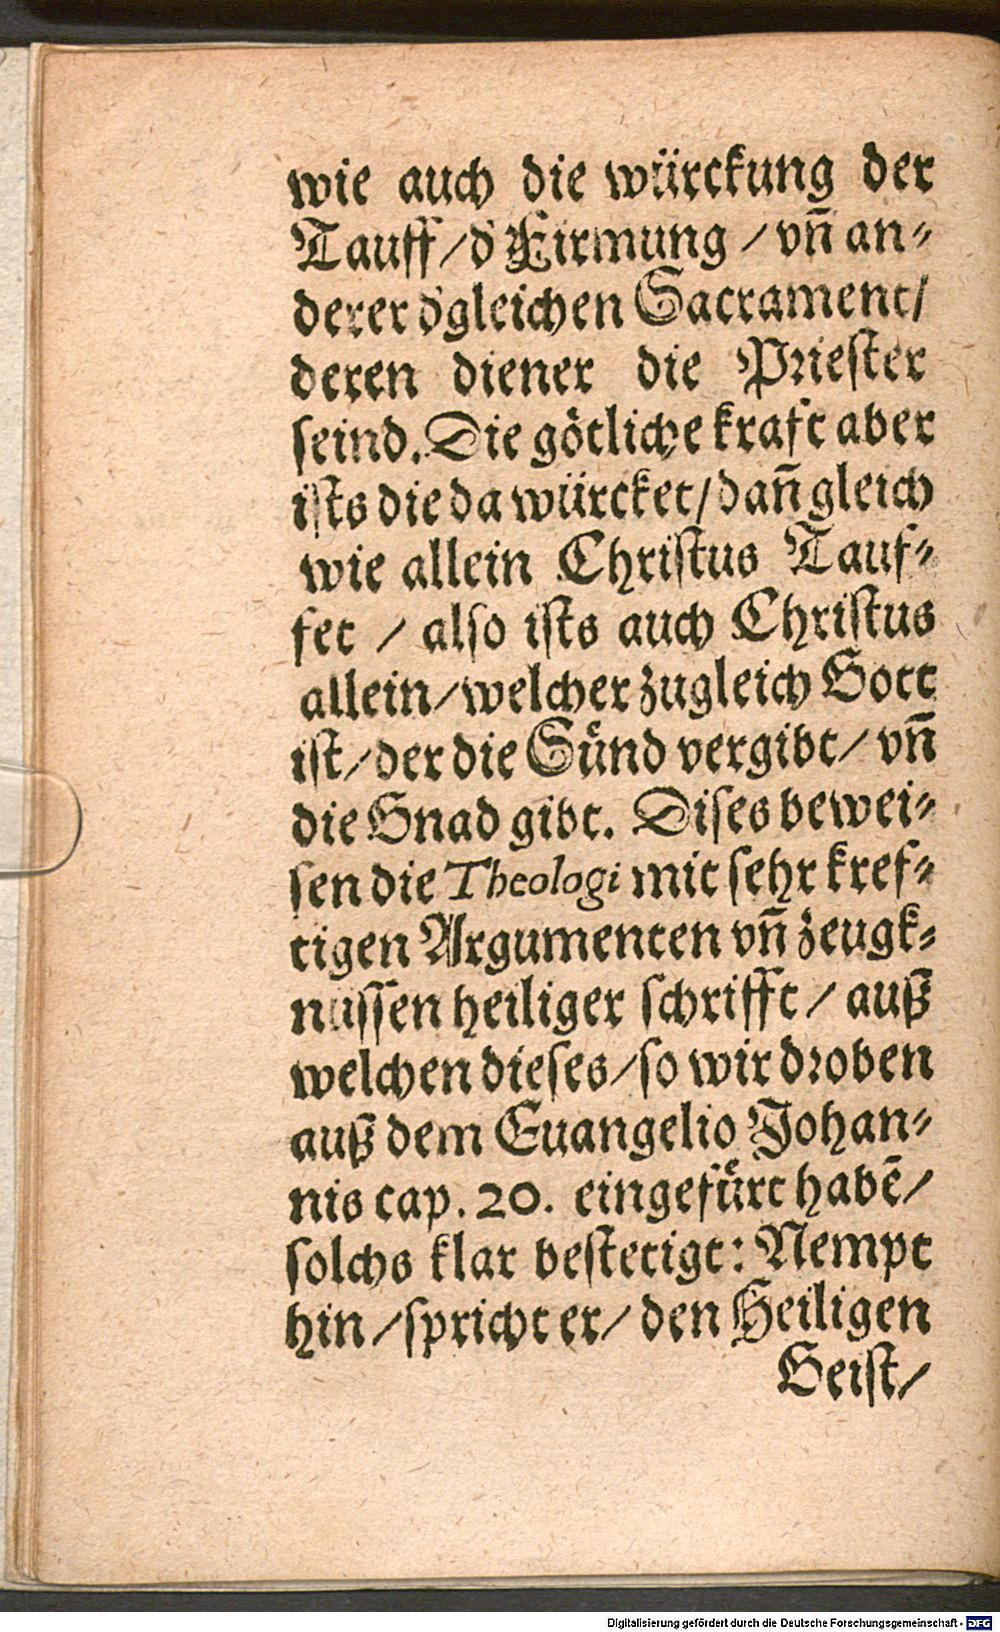 wie auch die würckung der
Tauff/d̕ Firmung/vñ an⸗
derer d̕gleichen Sacrament/
deren diener die Priester
seind. Die götliche kraft aber
iſts die da würcket/dañ gleich
wie allein Chriſtus Tauf⸗
fet / alſo iſts auch Chriſtus
allein/welcher zugleich Gott
iſt/der die Sünd vergibt/vñ
die Gnad gibt. Diſes bewei⸗
ſen die Theologi mit ſehr kref⸗
tigen Argumenten vñ zeugk⸗
nuſſen heiliger ſchrifft/auß
welchen dieſes/ſo wir droben
auß dem Euangelio Johan⸗
nis cap. 20. eingefürt habē/
ſolchs klar beſtetigt: Nempt
hin/ſpricht er/den Heiligen
Geiſt/
Digitalisierung gefördert durch die Deutsche Forschungsgemeinschaft - DFG